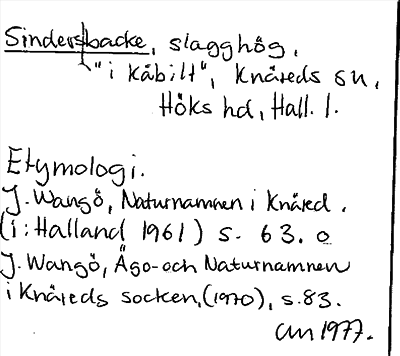 Sindersbacke, slagghög,
"i Kåbilt", Knäreds sn,
Höks hd, Hall. l.
Etymologi.
J. Wangö, Naturnamnen i Knäred.
(i: Halland 1961) s. 63. o
J. Wangö, Ägo- och Naturnamnen
i Knäreds socken, (1970), s. 83.
1977.